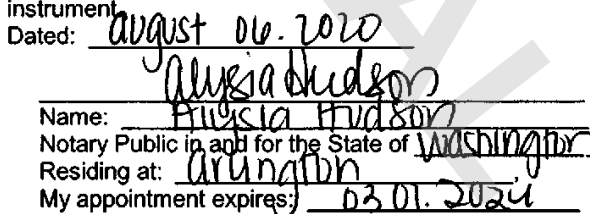 instrument.
Dated: august 06. 2020
alysia Hudson
Name: Alysia Hudson
Notary Public in and for the State of Washington
Residing at: arlington
My appointment expires: 03.01.2024